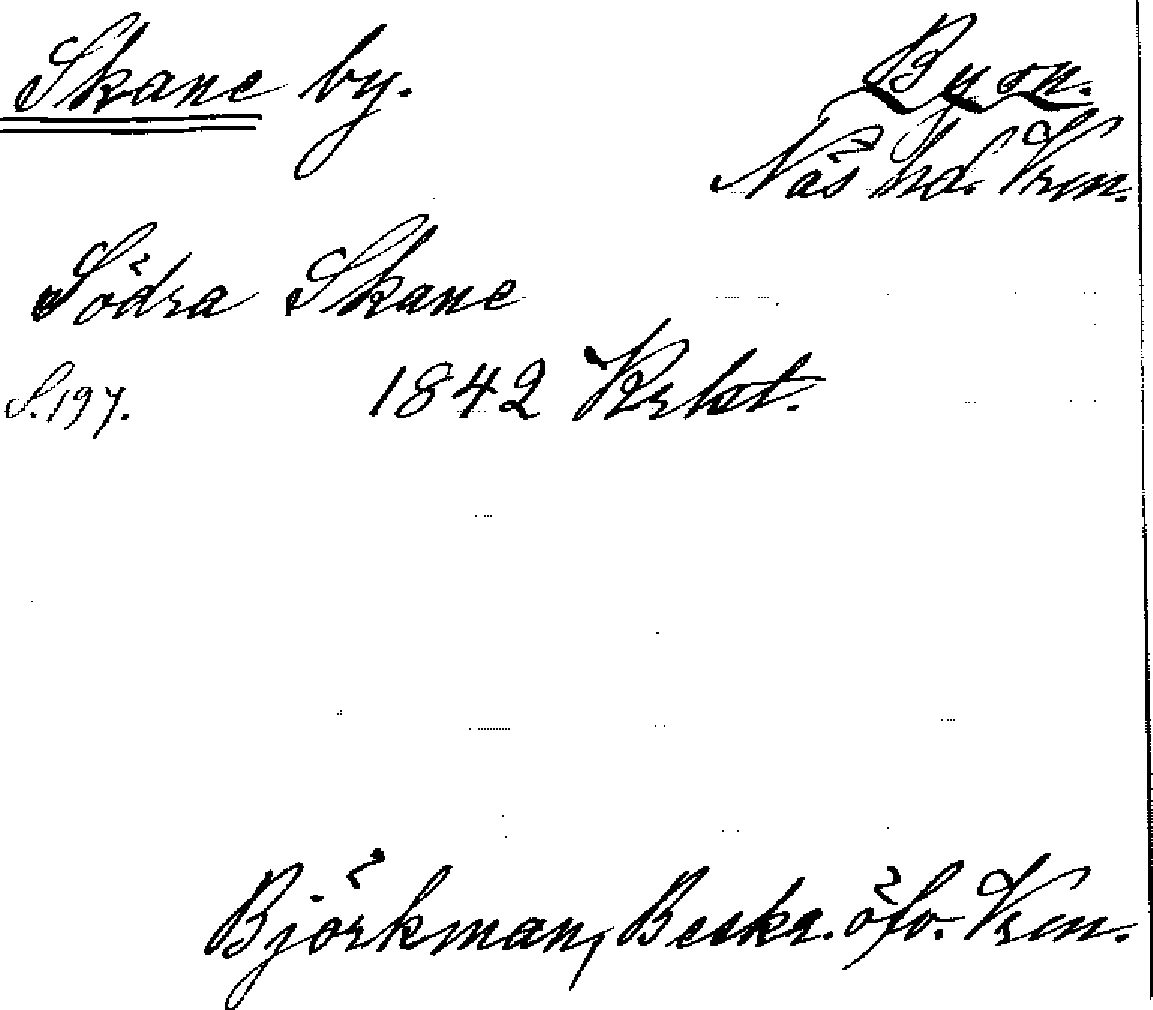 Skane by.
By sn.
Näs hd. Vrm.
Södra Skane
S. 197.
1842 Krkt.
Björkman, Beskr. öfv. Vrm.